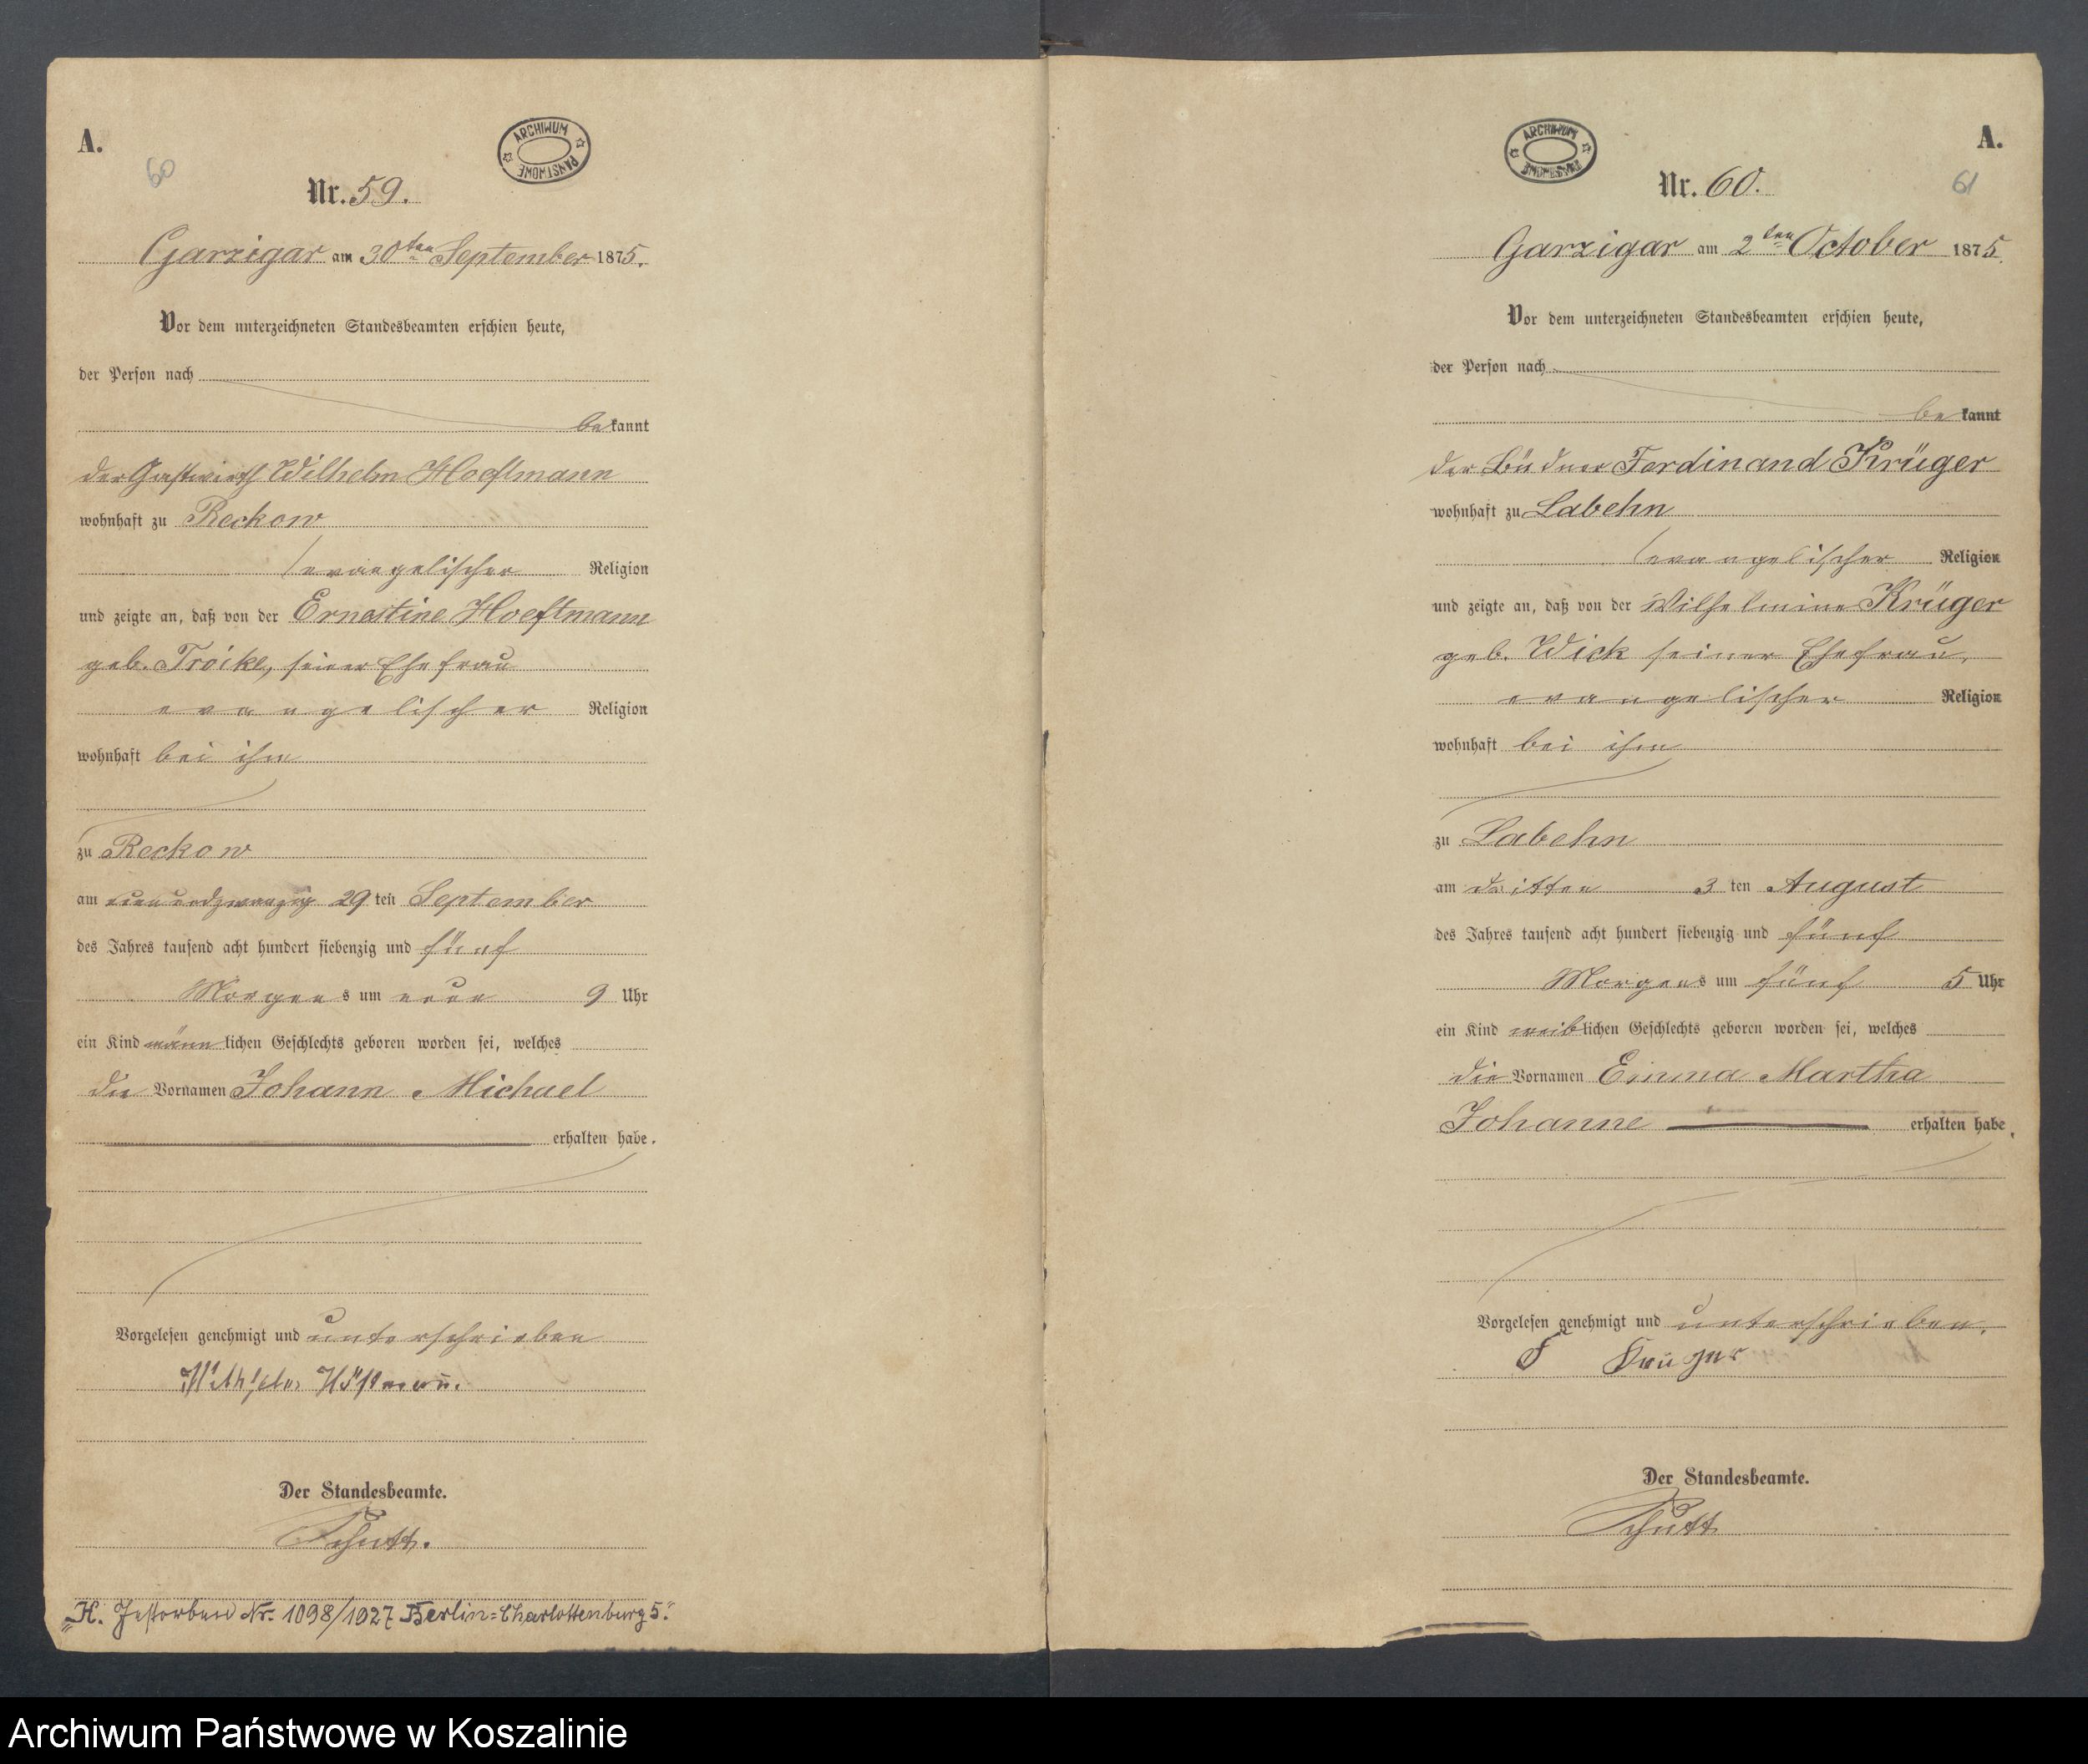 A.
60
ARCHIWUM PAŃSTWOWE
Nr. 59.
Garzigar am 30ten September 1875.
Vor dem unterzeichneten Standesbeamten erschien heute,
der Person nach
bekannt
der Gastwirth Wilhelm Hoeftmann
wohnhaft zu Reckow
evangelischer Religion
und zeigte an, daß von der Ernestine Hoeftmann
geb. Troike, seiner Ehefrau
evangelischer Religion
wohnhaft bei ihm
zu Reckow
am neunundzwanzig 29 ten September
des Jahres tausend acht hundert siebenzig und fünf
Morgens um neun 9 Uhr
ein Kind männlichen Geschlechts geboren worden sei, welches
die Vornamen Johann Michael
erhalten habe.
Vorgelesen genehmigt und unterschrieben
Wilhelm
Der Standesbeamte.
Schutt.
„H. Gestorben Nr. 1098/1927 Berlin=Charlottenburg 5."
A.
61
ARCHIWUM PAŃSTWOWE
Nr. 60.
Garzigar am 2ten October 1875.
Vor dem unterzeichneten Standesbeamten erschien heute,
der Person nach
bekannt
der Büdner Ferdinand Krüger
wohnhaft zu Labehn
evangelischer Religion
und zeigte an, daß von der Wilhelmine Krüger
geb. Wick seiner Ehefrau,
evangelischer Religion
wohnhaft bei ihm
zu Labehn
am dritten 3 ten August
des Jahres tausend acht hundert siebenzig und fünf
Morgens um fünf 5 Uhr
ein Kind weiblichen Geschlechts geboren worden sei, welches
die Vornamen Emma Martha
Johanne erhalten habe.
Vorgelesen genehmigt und unterschrieben.
F Krüger
Der Standesbeamte.
Schutt
Archiwum Państwowe w Koszalinie